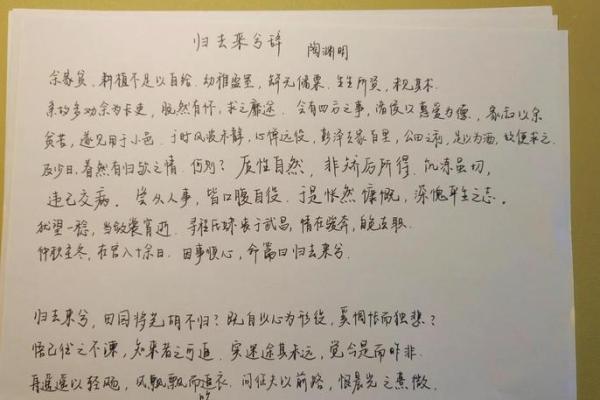 归去来兮辞 陶渊明
余家贫，耕植不足以自给。幼稚盈室，缾无储粟，生生所资，未见其术。
亲故多劝余为长吏，脱然有怀，求之靡途。会有四方之事，诸侯以惠爱为德，家叔以余
贫苦，遂见用于小邑。于时风波未静，心惮远役，彭泽去家百里，公田之利，足以为酒，故便求之。
及少日，眷然有归欤之情。何则？质性自然，非矫厉所得。饥冻虽切，
违己交病。尝从人事，皆口腹自役。于是怅然慷慨，深愧平生之志。
犹望一稔，当敛裳宵逝。寻程氏妹丧于武昌，情在骏奔，自免去职。
仲秋至冬，在官八十余日。因事顺心，命篇曰归去来兮。
归去来兮，田园将芜胡不归？既自以心为形役，奚惆怅而独悲？
悟已往之不谏，知来者之可追。实迷途其未远，觉今是而昨非。
舟遥遥以轻飏，风飘飘而衣。问征夫以前路，恨晨光之熹微。
吹